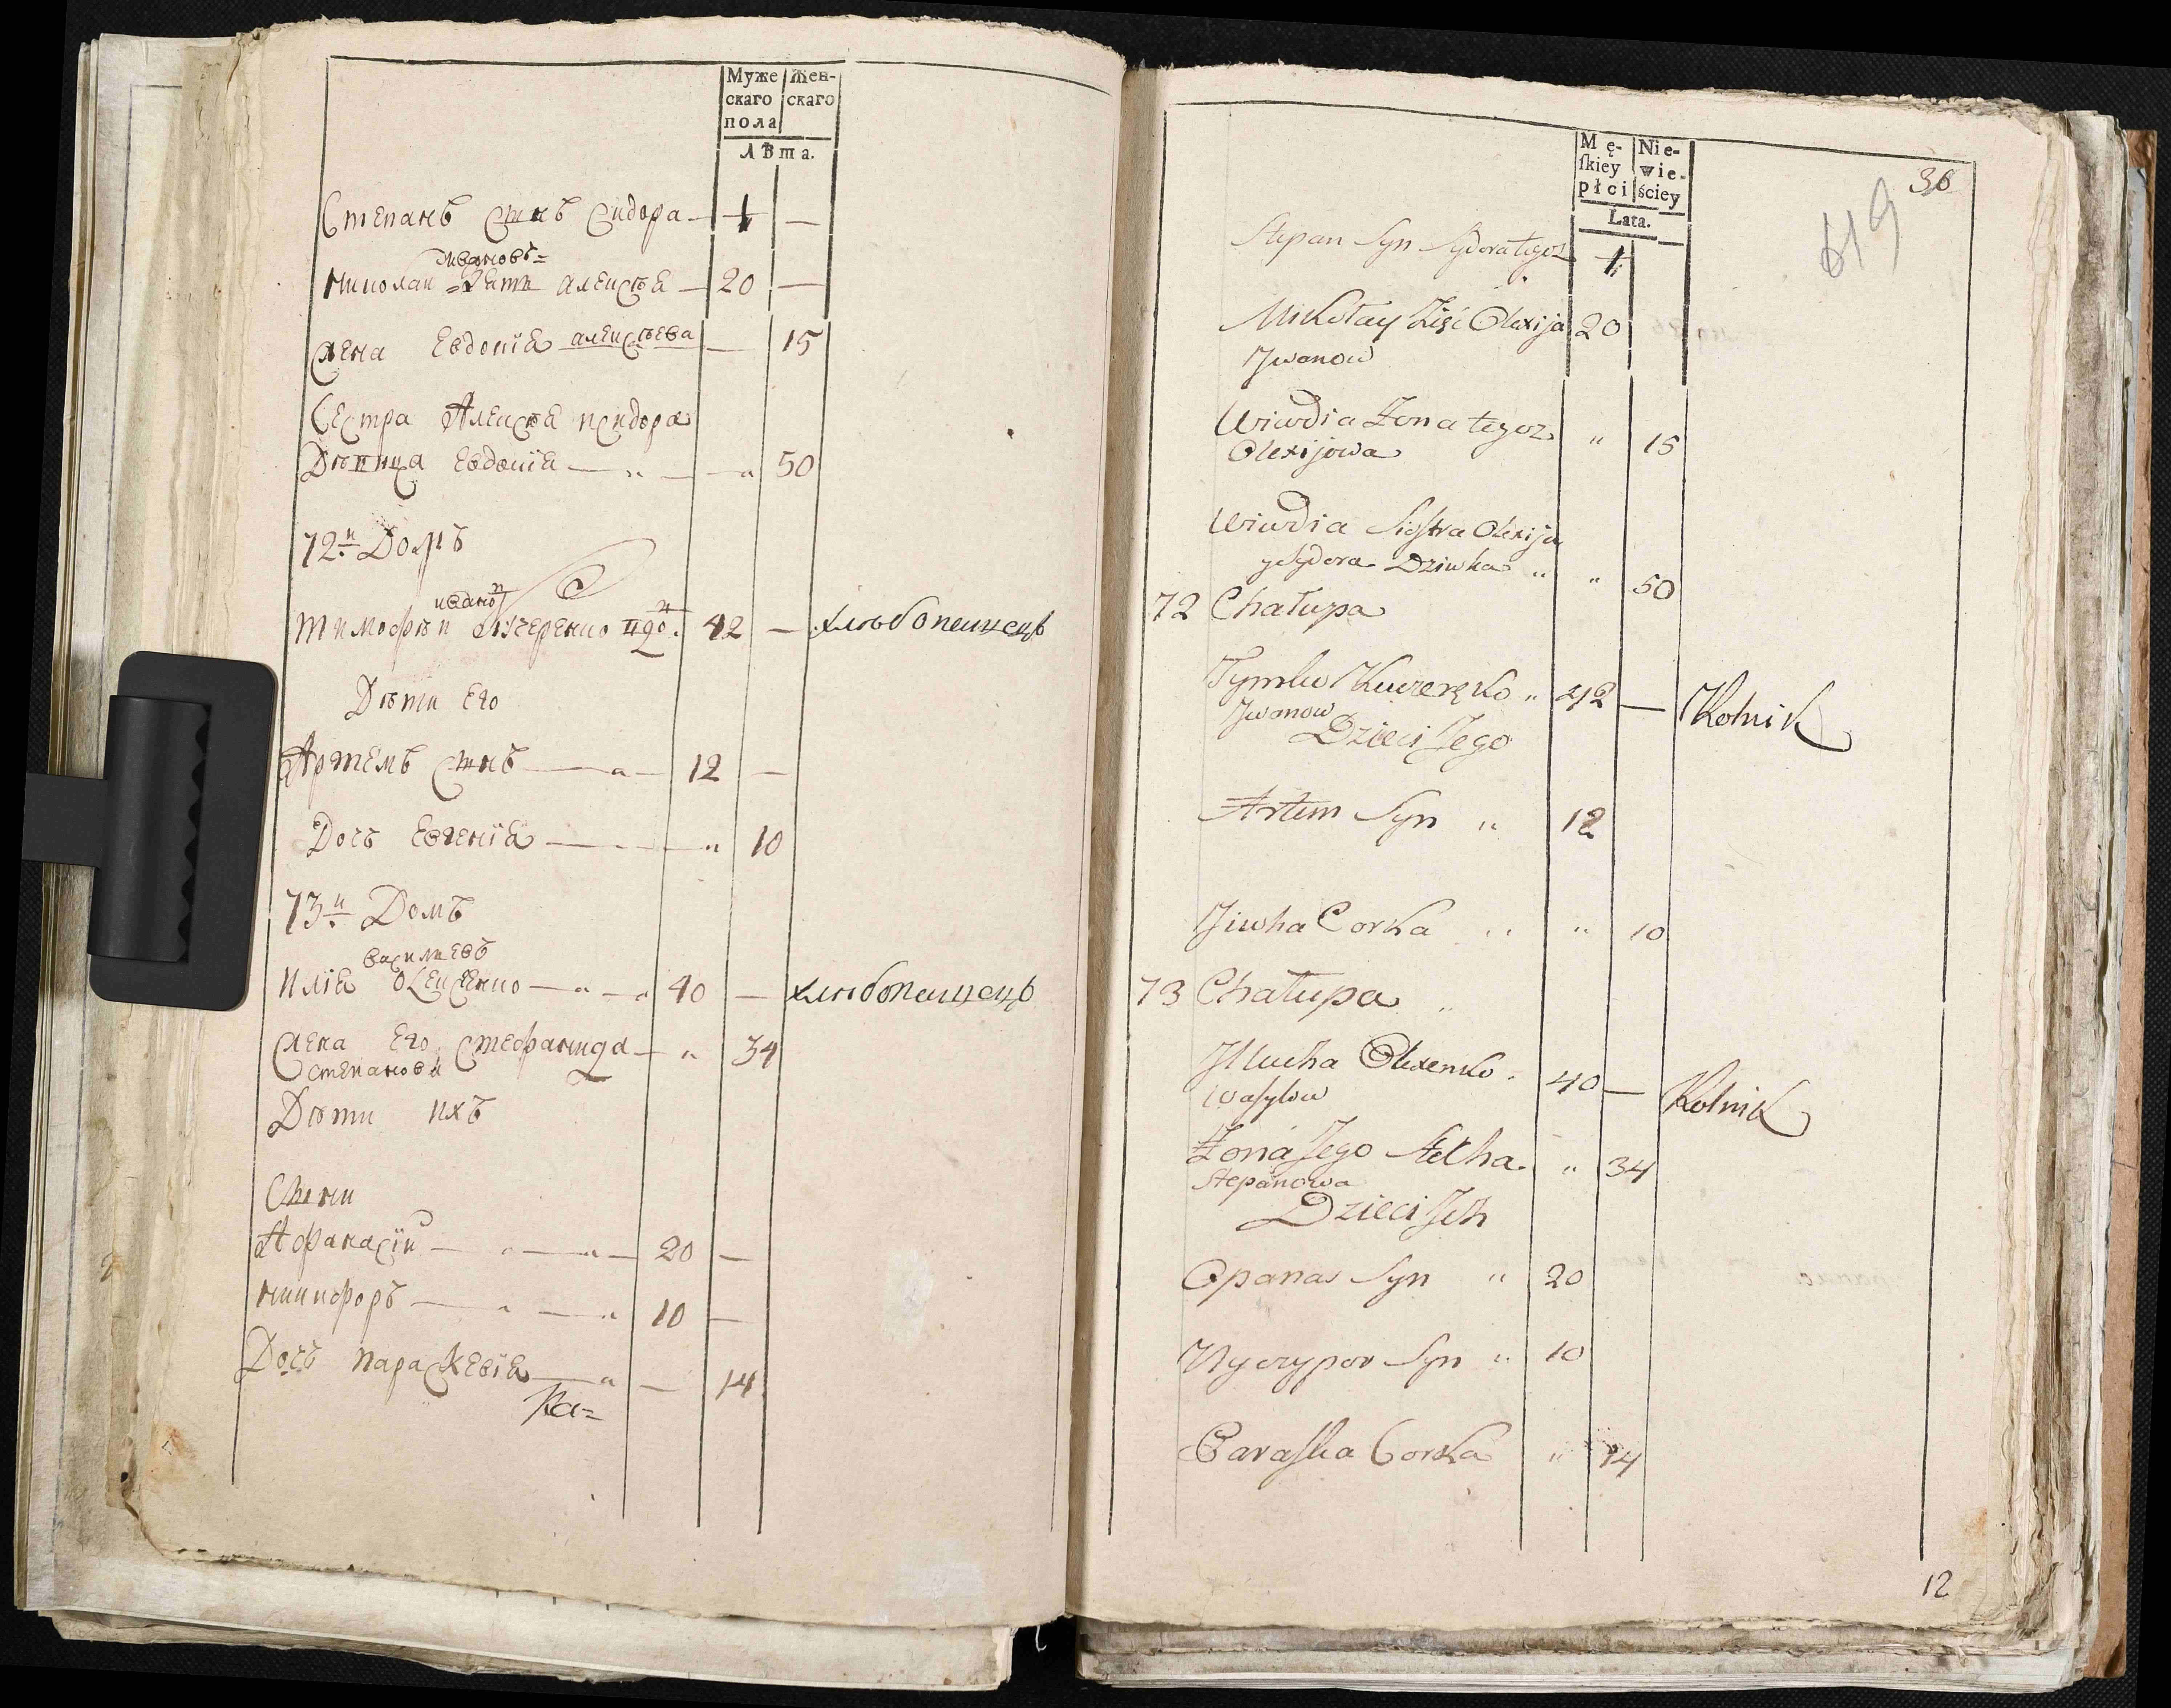 Муже
скаго
пола
Жен-
скаго
Лѣта.
Степанъ сынъ Сидора — 1 —
Ивановъ=
Николаи = Зять Алексѣя — 20 —
жена Евдокїя алексѣева — 15
Сестра Алексѣя и Сидора
Дѣвица Евдокїя — „ — „ 50
72й Домъ
ивано
Тимофѣи Кучеренко 42 — хлѣбопашецъ
Дѣти Его
Артемъ сынъ — „ — 12 —
Дочь Евгенїя — „ 10
73й Домъ
василиевъ
Илїя Олексенко — „ — „ 40 — хлѣбопашецъ
жена Его Стефанида — „ 34
степанова
Дѣти ихъ
Сыны
Афанасїй — „ — 20 —
Никифоръ — „ — „ 10 —
Дочь Параскевїя — „ — 14
Ка=
Mę-
ſkiey
płci
Nie-
wie-
ściey
Lata.
36
Stepan Syn Sydora tegoz 1
Mikołay Zięć Olexija 20
Jwanow
Wiwdia Żona tegoz „ 15
Olexijowa
Wiwdia Siostra Olexija
y Sydora Dziwka „ „ 50
72 Chałupa
Tymko Kuczeręko „ 42 — Rolnik
Jwanow
Dzieci Jego
Artem Syn „ 12
Jiwha Corka „ „ 10
73 Chałupa „
Jlucha Olexenko 40 — Rolnik
Wasylow
Żona Jego Stecha „ 34
Stepanowa
Dzieci Jch
Opanas Syn „ 20
Nyczypor Syn „ 10
Paraska Corka „ 14
12